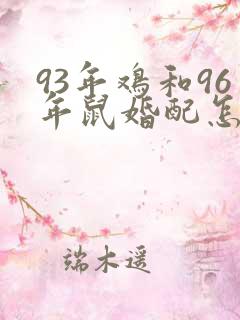 93年鸡和96
年鼠婚配怎
端木遥